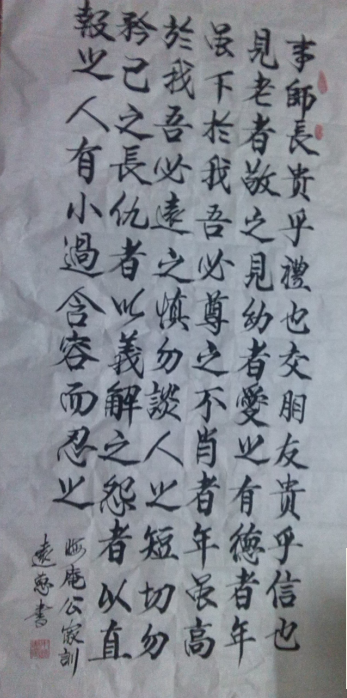 事師長貴乎禮也交朋友貴乎信也
見老者敬之見幼者愛之有德者年
虽下於我吾必尊之不肖者年虽高
於我吾必遠之慎勿談人之短切勿
矜己之長仇者以義解之怨者以直
報之人有小過含容而忍之
晦庵公家訓
遠  書